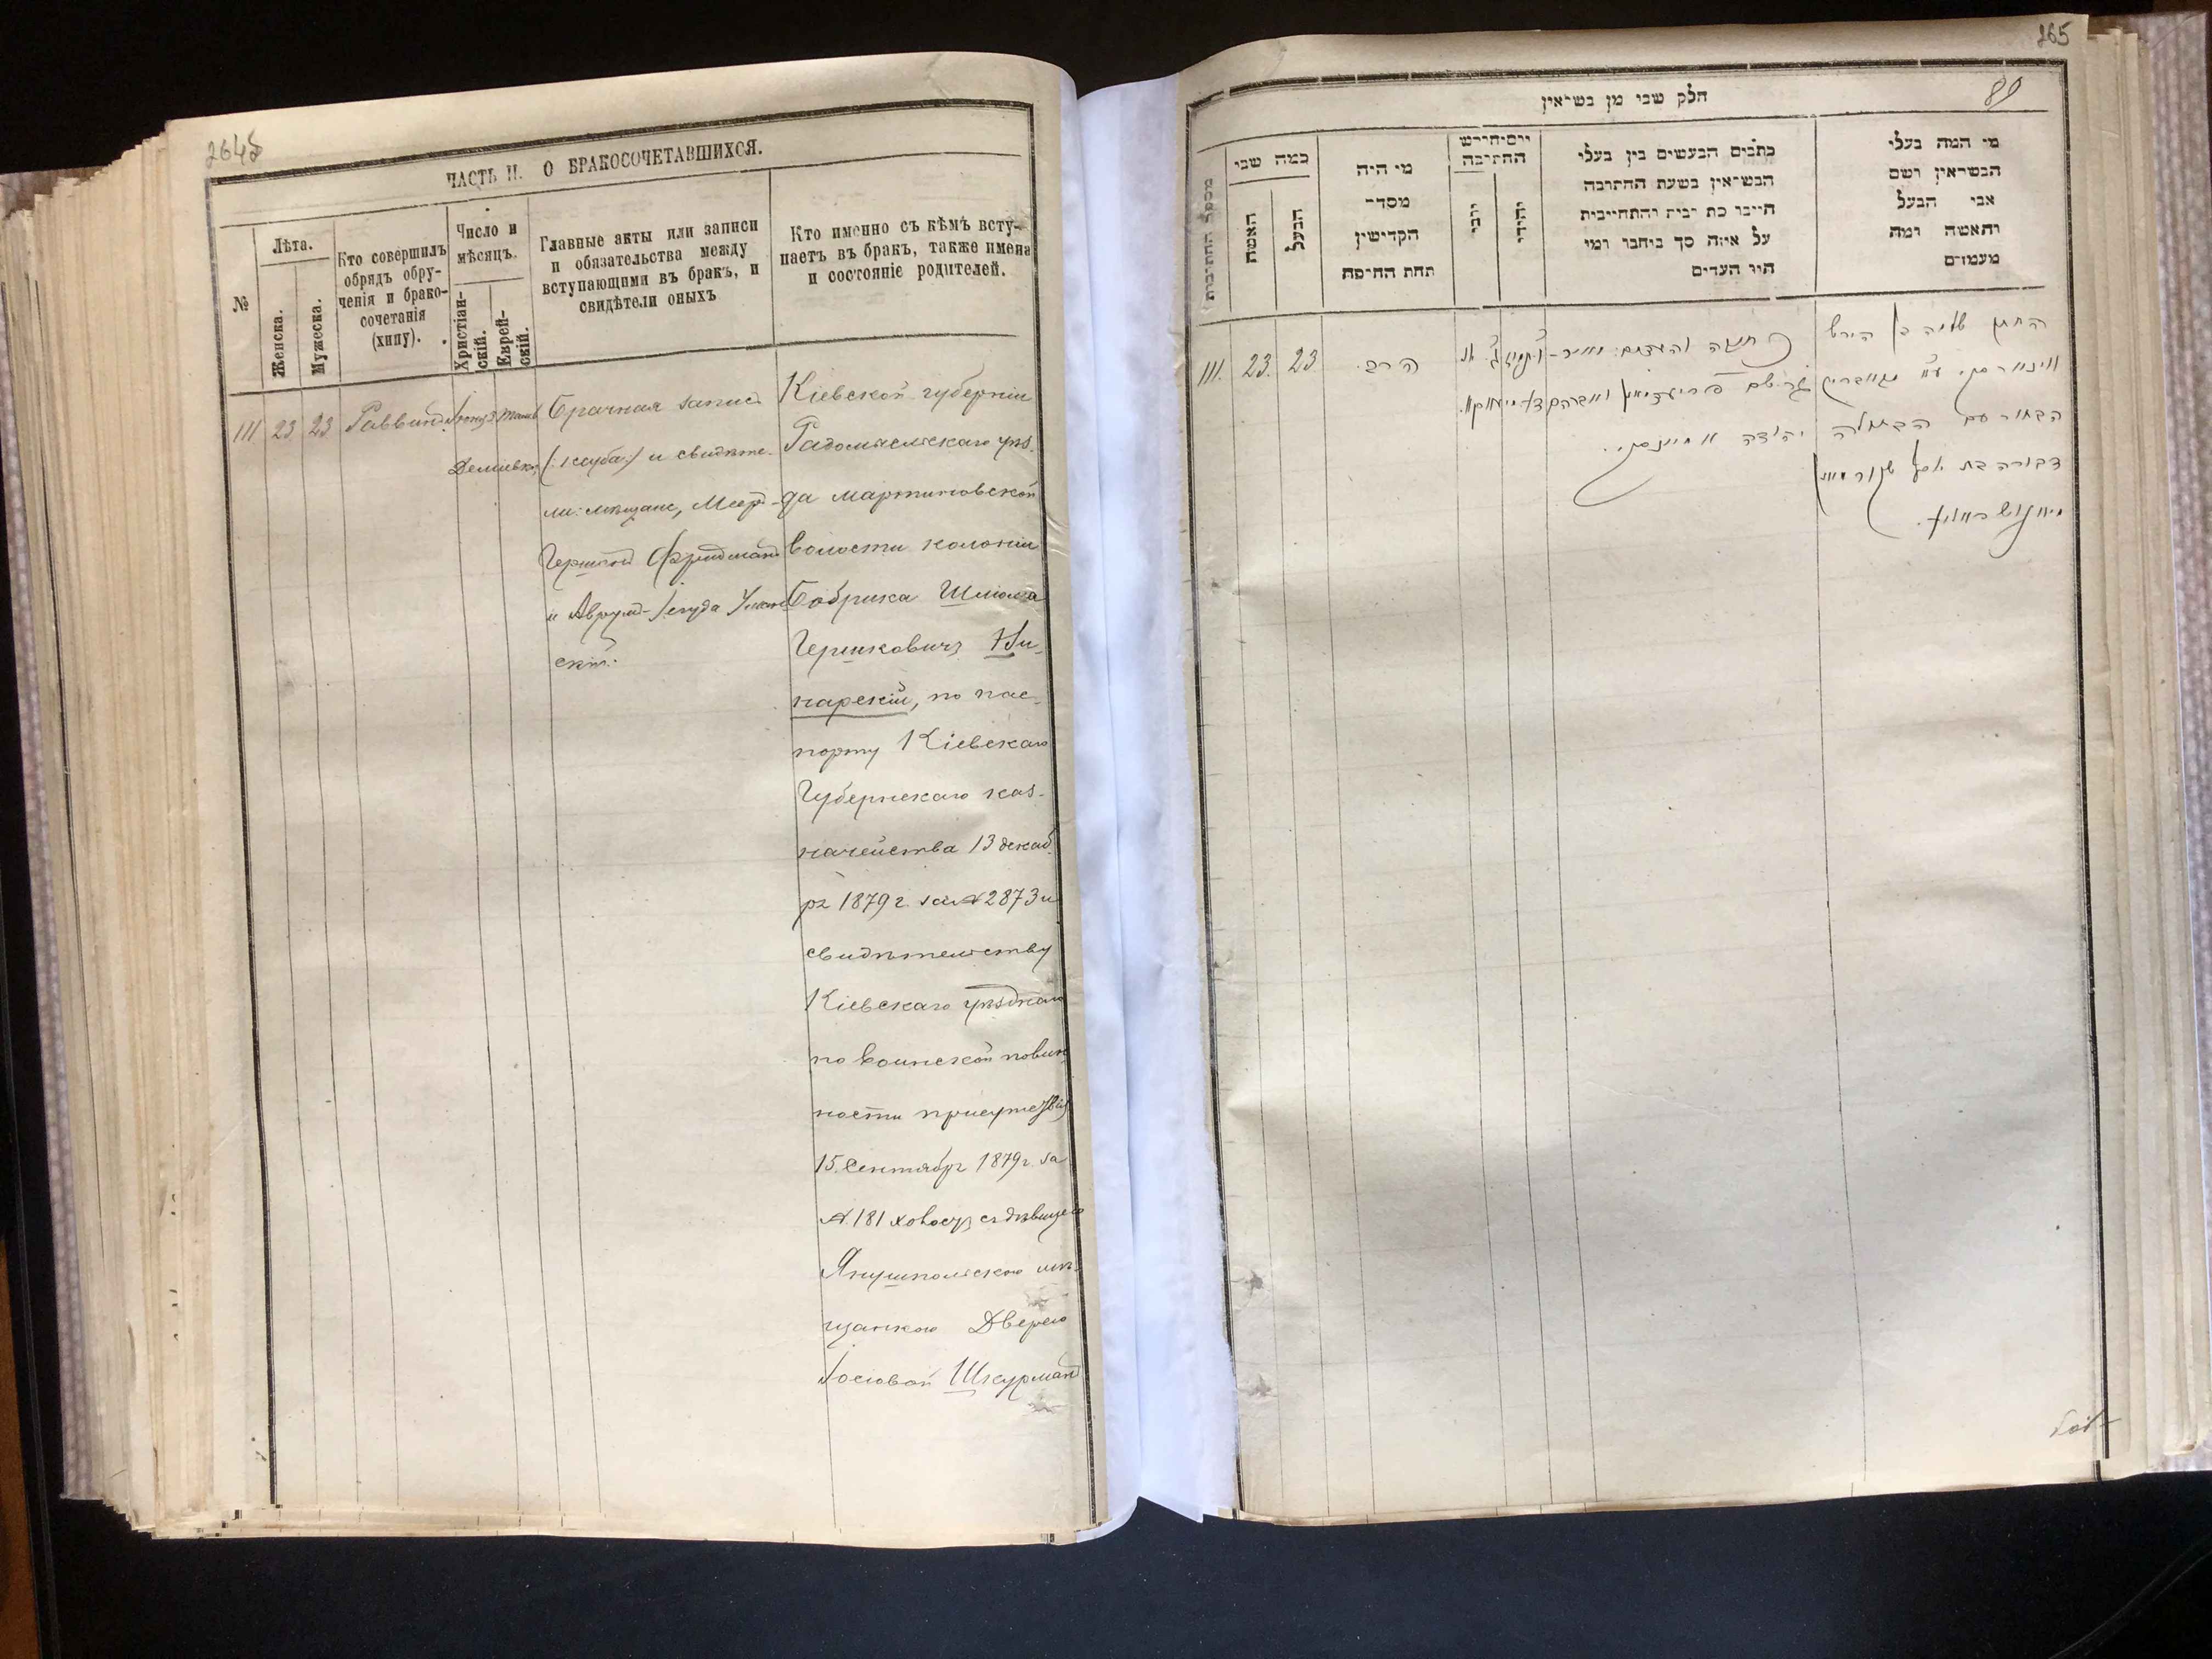 264
ЧАСТЬ II. О БРАКОСОЧЕТАВШИХСЯ.
№
Лѣта.
Женска.
Мужеска.
Кто совершилъ
обрядъ обру-
ченія и брако-
сочетанія
(хипу).
Число и
мѣсяцъ.
Христіан-
скій.
Еврей-
скій.
Главные акты или записи
и обязательства между
вступающими въ бракъ, и
свидѣтели оныхъ
Кто именно съ кѣмъ всту-
паетъ въ бракъ, также имена
и состояніе родителей.
111
23
23
Раввинъ
Деміевка
Брачная запись
и свидѣте-
ли: мѣщане, Меер-
Гершонъ Фридманъ
и Аврумъ-Іегуда
скій.
Кіевской губерніи
Радомысльскаго уѣз-
да Мартиновской
волости колоніи
Бобрика Шлюма
Гершковичъ Ви-
нарскій, по пас-
порту Кіевскаго
Губернскаго каз-
начейства 13 декаб-
ря 1879 г. за № 2873 и
свидѣтельству
Кіевскаго уѣзднаго
по воинской повин
ности присутствія
15 Сентября 1879 г. за
№ 181 холосъ съ дѣвицею
Янушпольскою мѣ-
щанкою Двейрею
Іосіовой Шкурманъ
265
89
חלק שני מן נשואין
מספר החתונות
כמה שני
האשה
הבעל
מי היה
מסדר
הקדישין
תחת החיפה
יום וחודש
החתונה
נוצרי
יהודי
כתבים הנעשים בין בעלי
הנשואין בשעת החתונה
היינו כתובית והתחייבית
על איזה סך ניתנו ומי
היו העדים
מי המה בעלי
הנשואין ושם
אבי הבעל
והאשה ומה
מעמדם
111.
23.
23
הרב.
החתן שלמה בן הירש
הבחור עם הבתולה
דבורה בת יוסף שקורמאן